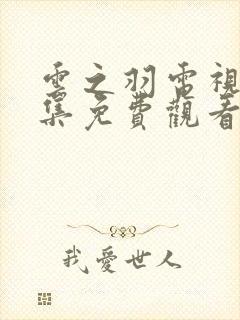 雲之羽電視
集免費觀看
我愛世人